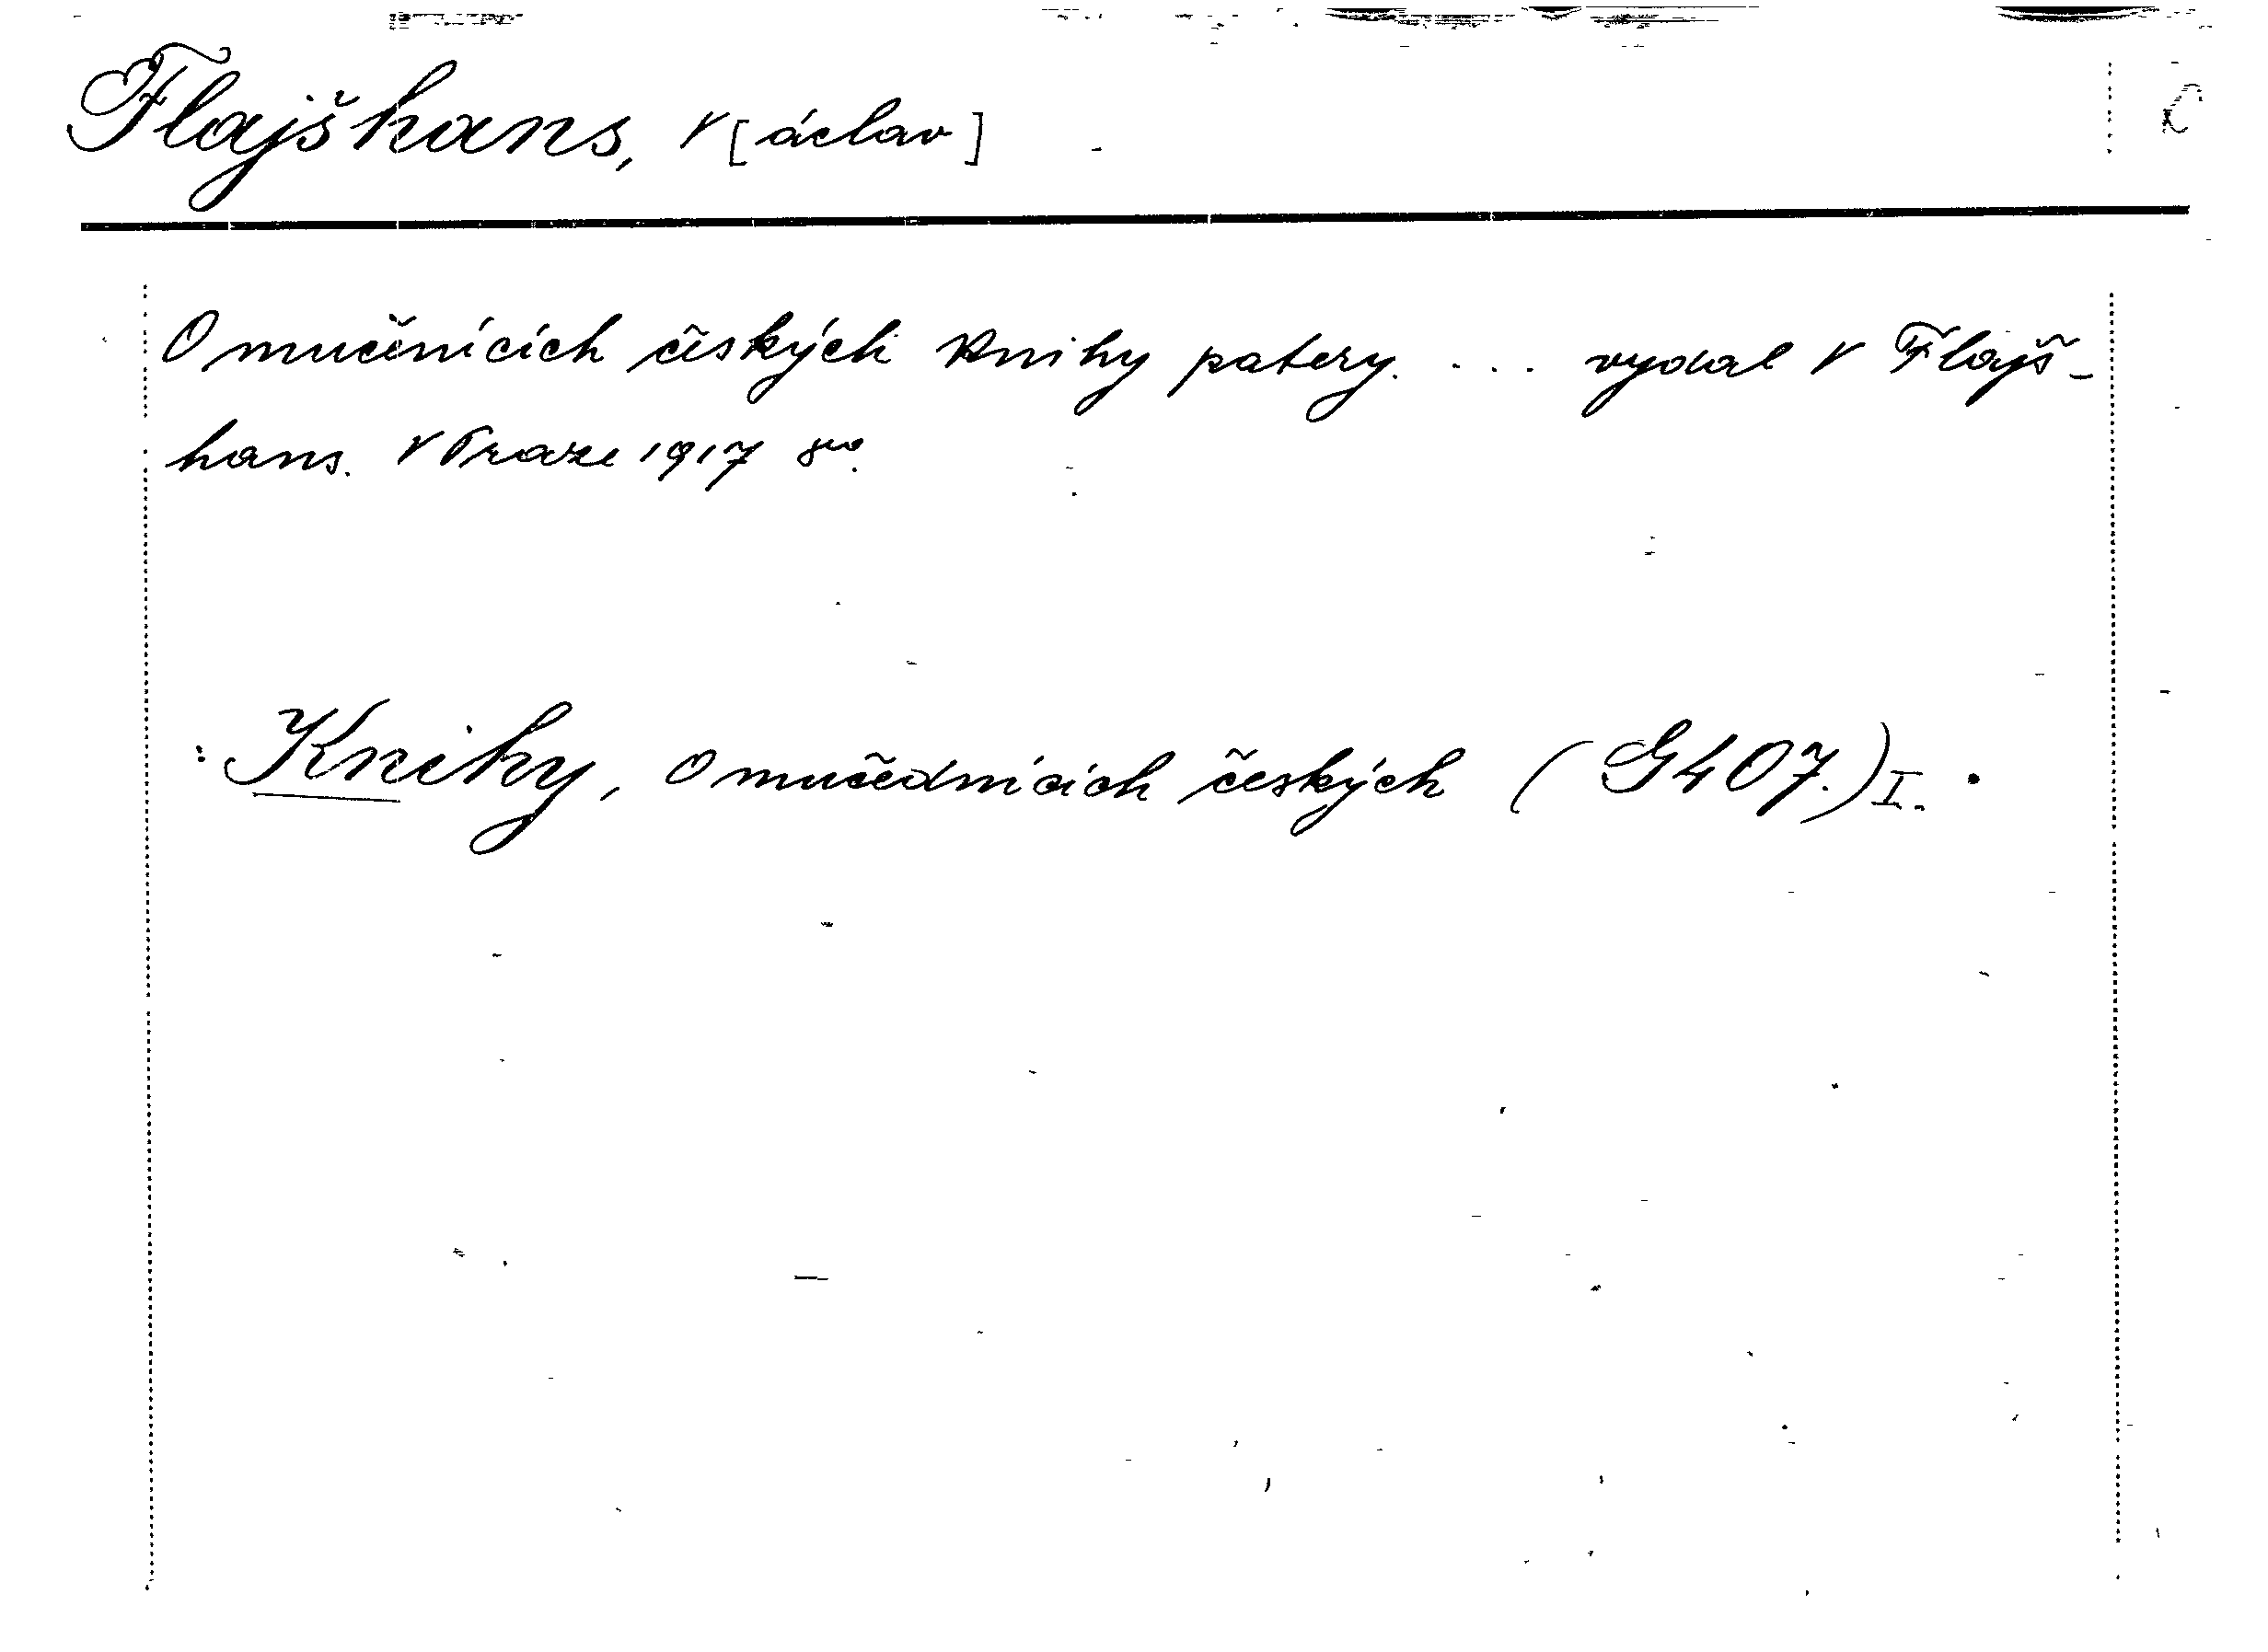 Flajšhans, V[áclav]
O mučenících českých knihy patery. ... vydal V Flajš-
hans. V Praze 1917 8vo.
: Knihy, O mučednících českých (G407.) I.